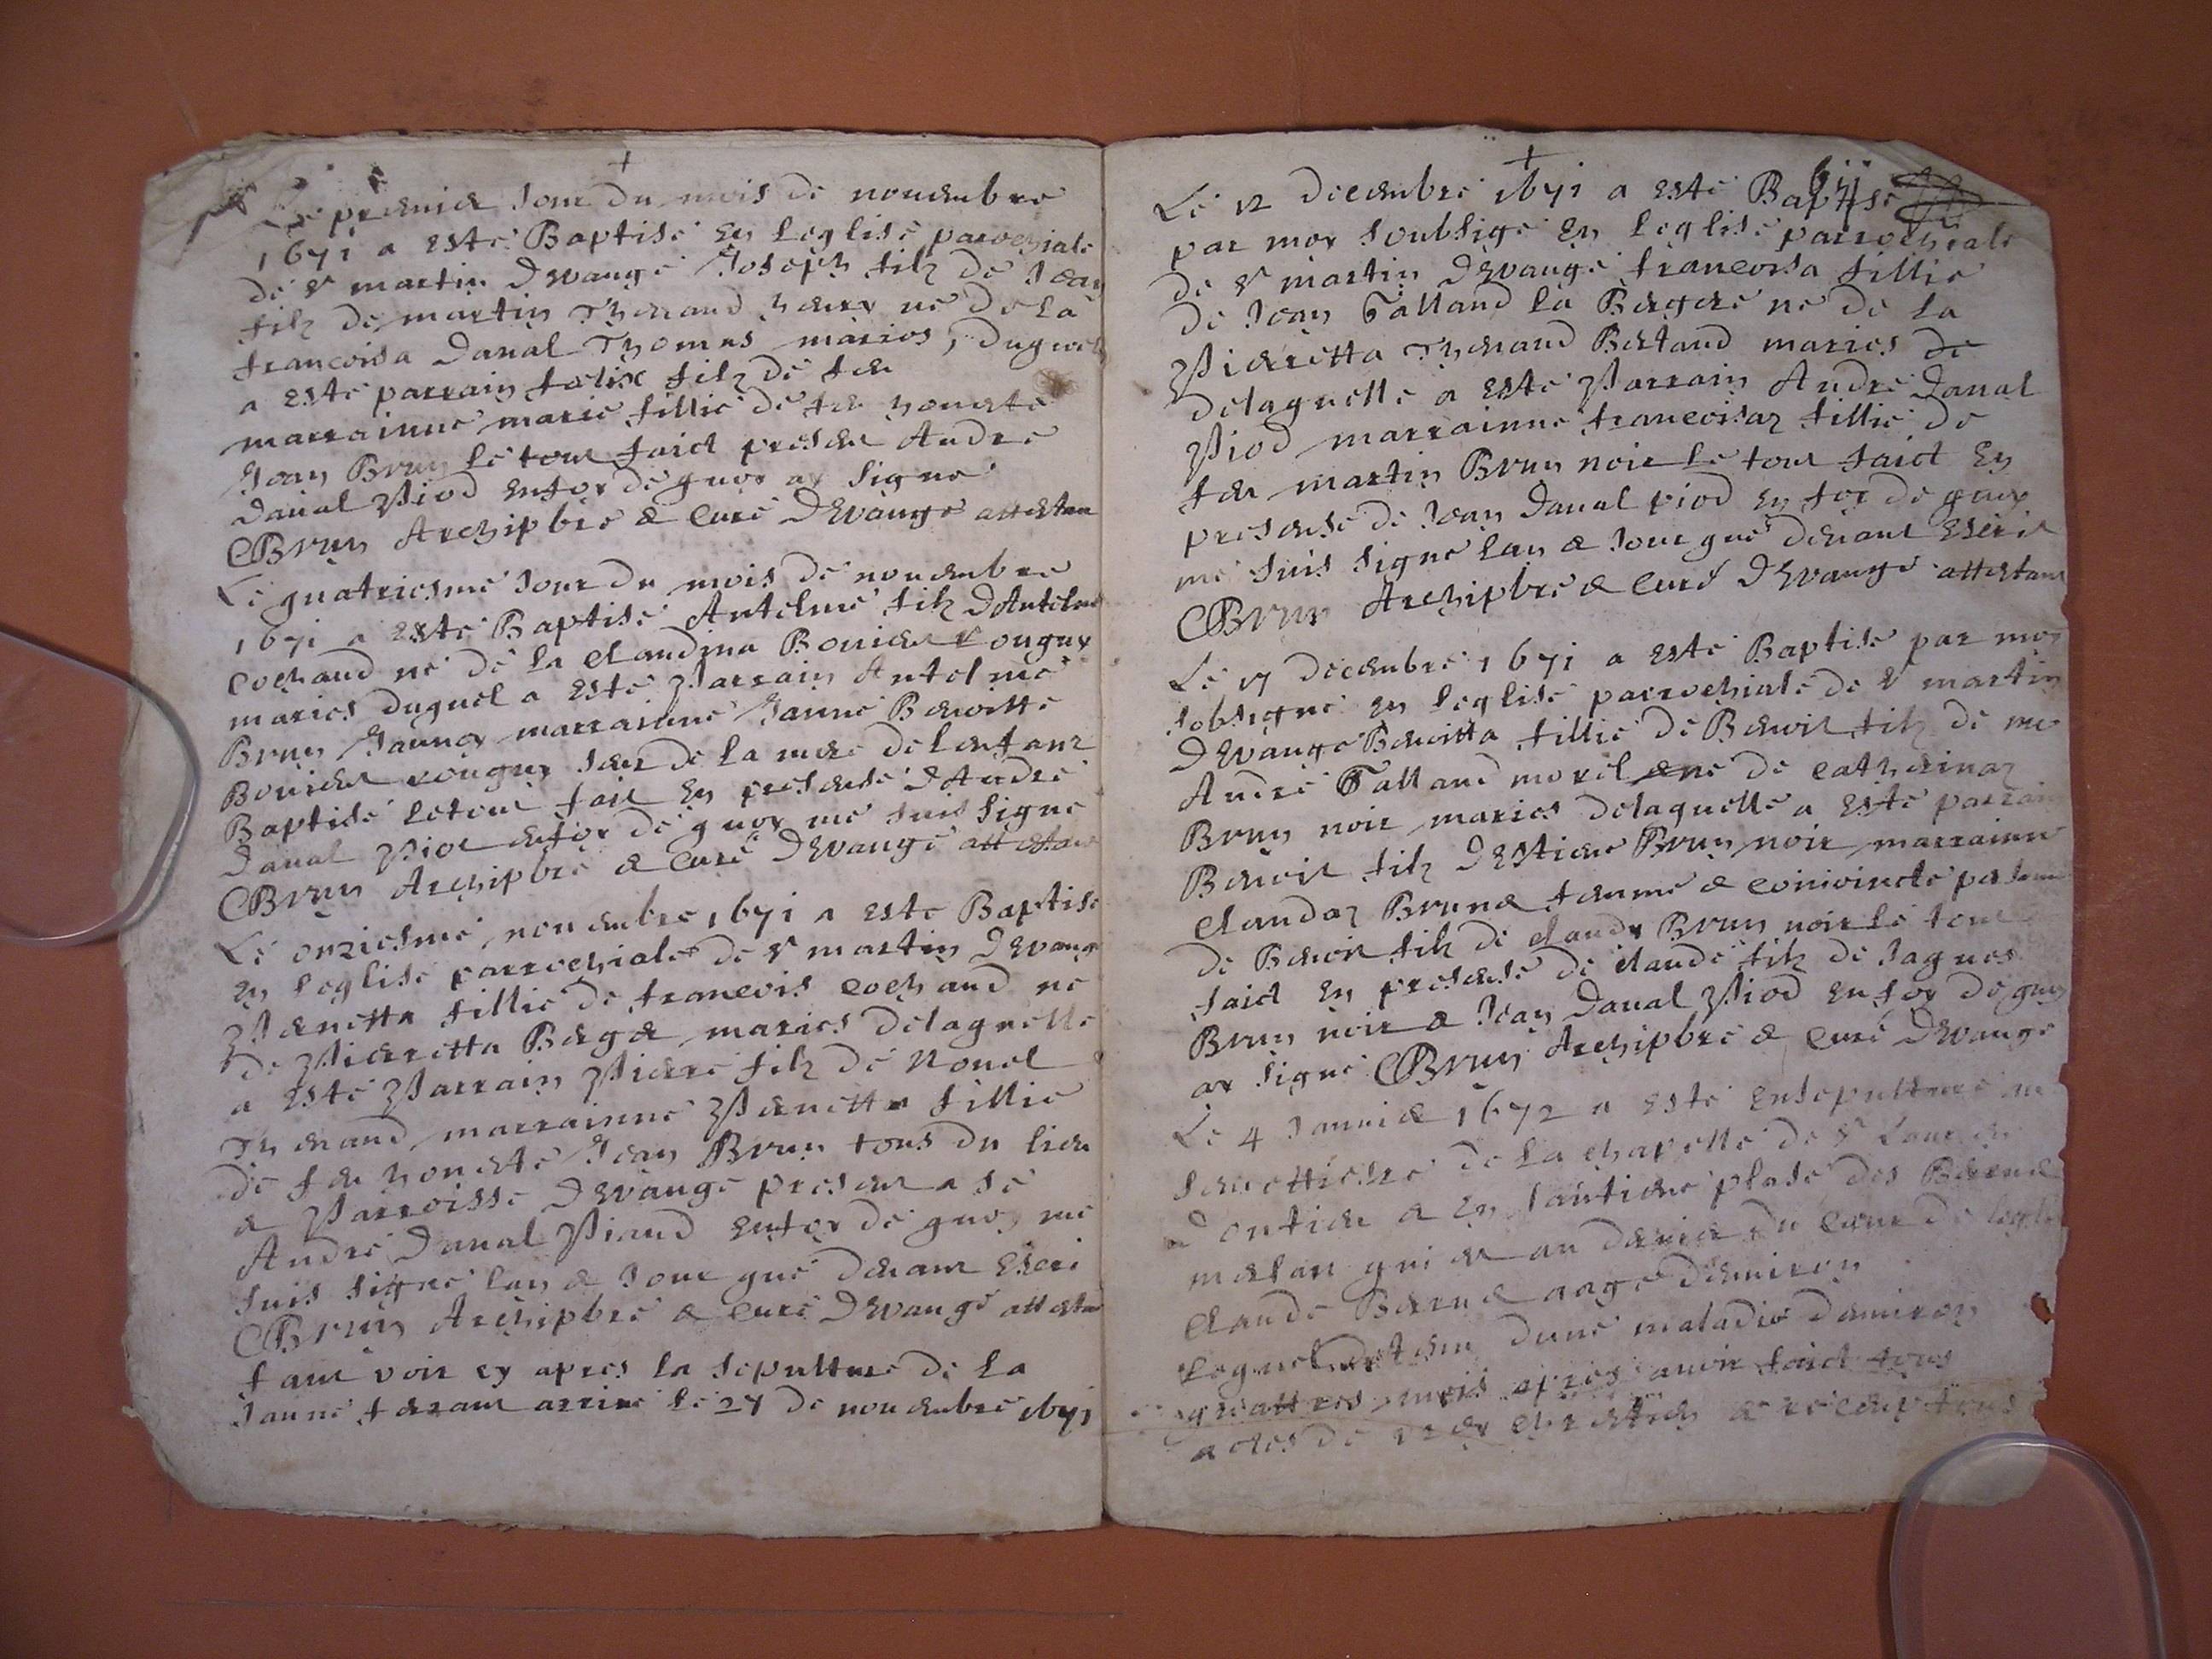 +
Le premier Jour du mois de nouembre
1671 a este Baptise en leglise parochiale
de st martin D Evange Joseph filz de Jean
filz de martin Therand ne de la
francoisa Danal Thomas maries, duquel
a este parrain foelix filz de feu
marrainne marie fillie de feu honeste
Jean Brun le tout faict presen Andre
Danal Piod enfoy de quoy ay signe
Brun Archipbre & Cure D Evange attestan
Le quatriesme Jour du mois de nouembre
1671 a este Baptise Antelme filz D Antelme
Cochand ne de la Claudina Bouier rouguy
maries duquel a este Parrain Antelme
Brun Jaunoy marrainne Janne Benoitte
Bouier rouguy seur de la mere de lenfant
Baptise letout fait en presense D Andre
Danal Piot enfoy de quoy me suis signe
Brun Archipbre & Cure D Evange attestant
Le onziesme nouembre 1671 a este Baptise
en leglise parrochiale de st martin D Evange
Pernetta fillie de francois Cochand ne
de Pierretta Berger maries delaquelle
a este Parrain Pierre filz de Nouel
Therand marrainne Pernetta fillie
de feu honeste Jean Brun tous du lieu
& Parroisse D Evange presen a se
Andre Danal Piaud enfoy de quoy me
suis signe lan & Jour que deuant escri
Brun Archipbre & Cure D Evange attestan
faut voir cy apres la sepulture de la
Janne feraut arrive le 27 de nouembre 1671
+
Le 12 decembre 1671 a este Baptise
par moy soubsige en leglise parrochiale
de st martin D Evange francoisa fillie
de Jean Talland la Bergere ne de la
Pierretta Therand Bertaud maries de
delaquelle a este Parrain Andre Danal
Piod marrainne francoisaz fillie de
feu martin Brun noir le tout faict en
presense de Jean Danal piod en foy de quoy
me suis signe lan & Jour que deuant escrit
Brun Archipbre & Cure D Evange attestant
Le 17 decembre 1671 a este Baptise par moy
sobsigne en leglise parrochiale de st martin
D Evange Benoitta fillie de Benoit filz de
Andre Talland morel ne de Catherinaz
Brun noir maries delaquelle a este parrain
Benoit filz D Estiene Brun noir marrainne
Claudaz Brune femme & Conioincte
de Benoit filz de claude Brun noir le tout
faict en presense de claude filz de Jaques
Brun noir & Jean Danal Piod enfoy de quoy
ay signe Brun Archipbre & Cure D Evange
Le 4 Januier 1672 a este ensepulture au
semettiesre de la chapelle de st Laurent
a ontiex & en lantiene plase des
qui est au derrier du Ceur de legli
Claude aage denuiron
Lequel dune maladie denuiron
quattres mois apres auoir faict tous
actes de vray chrestien & receup tous